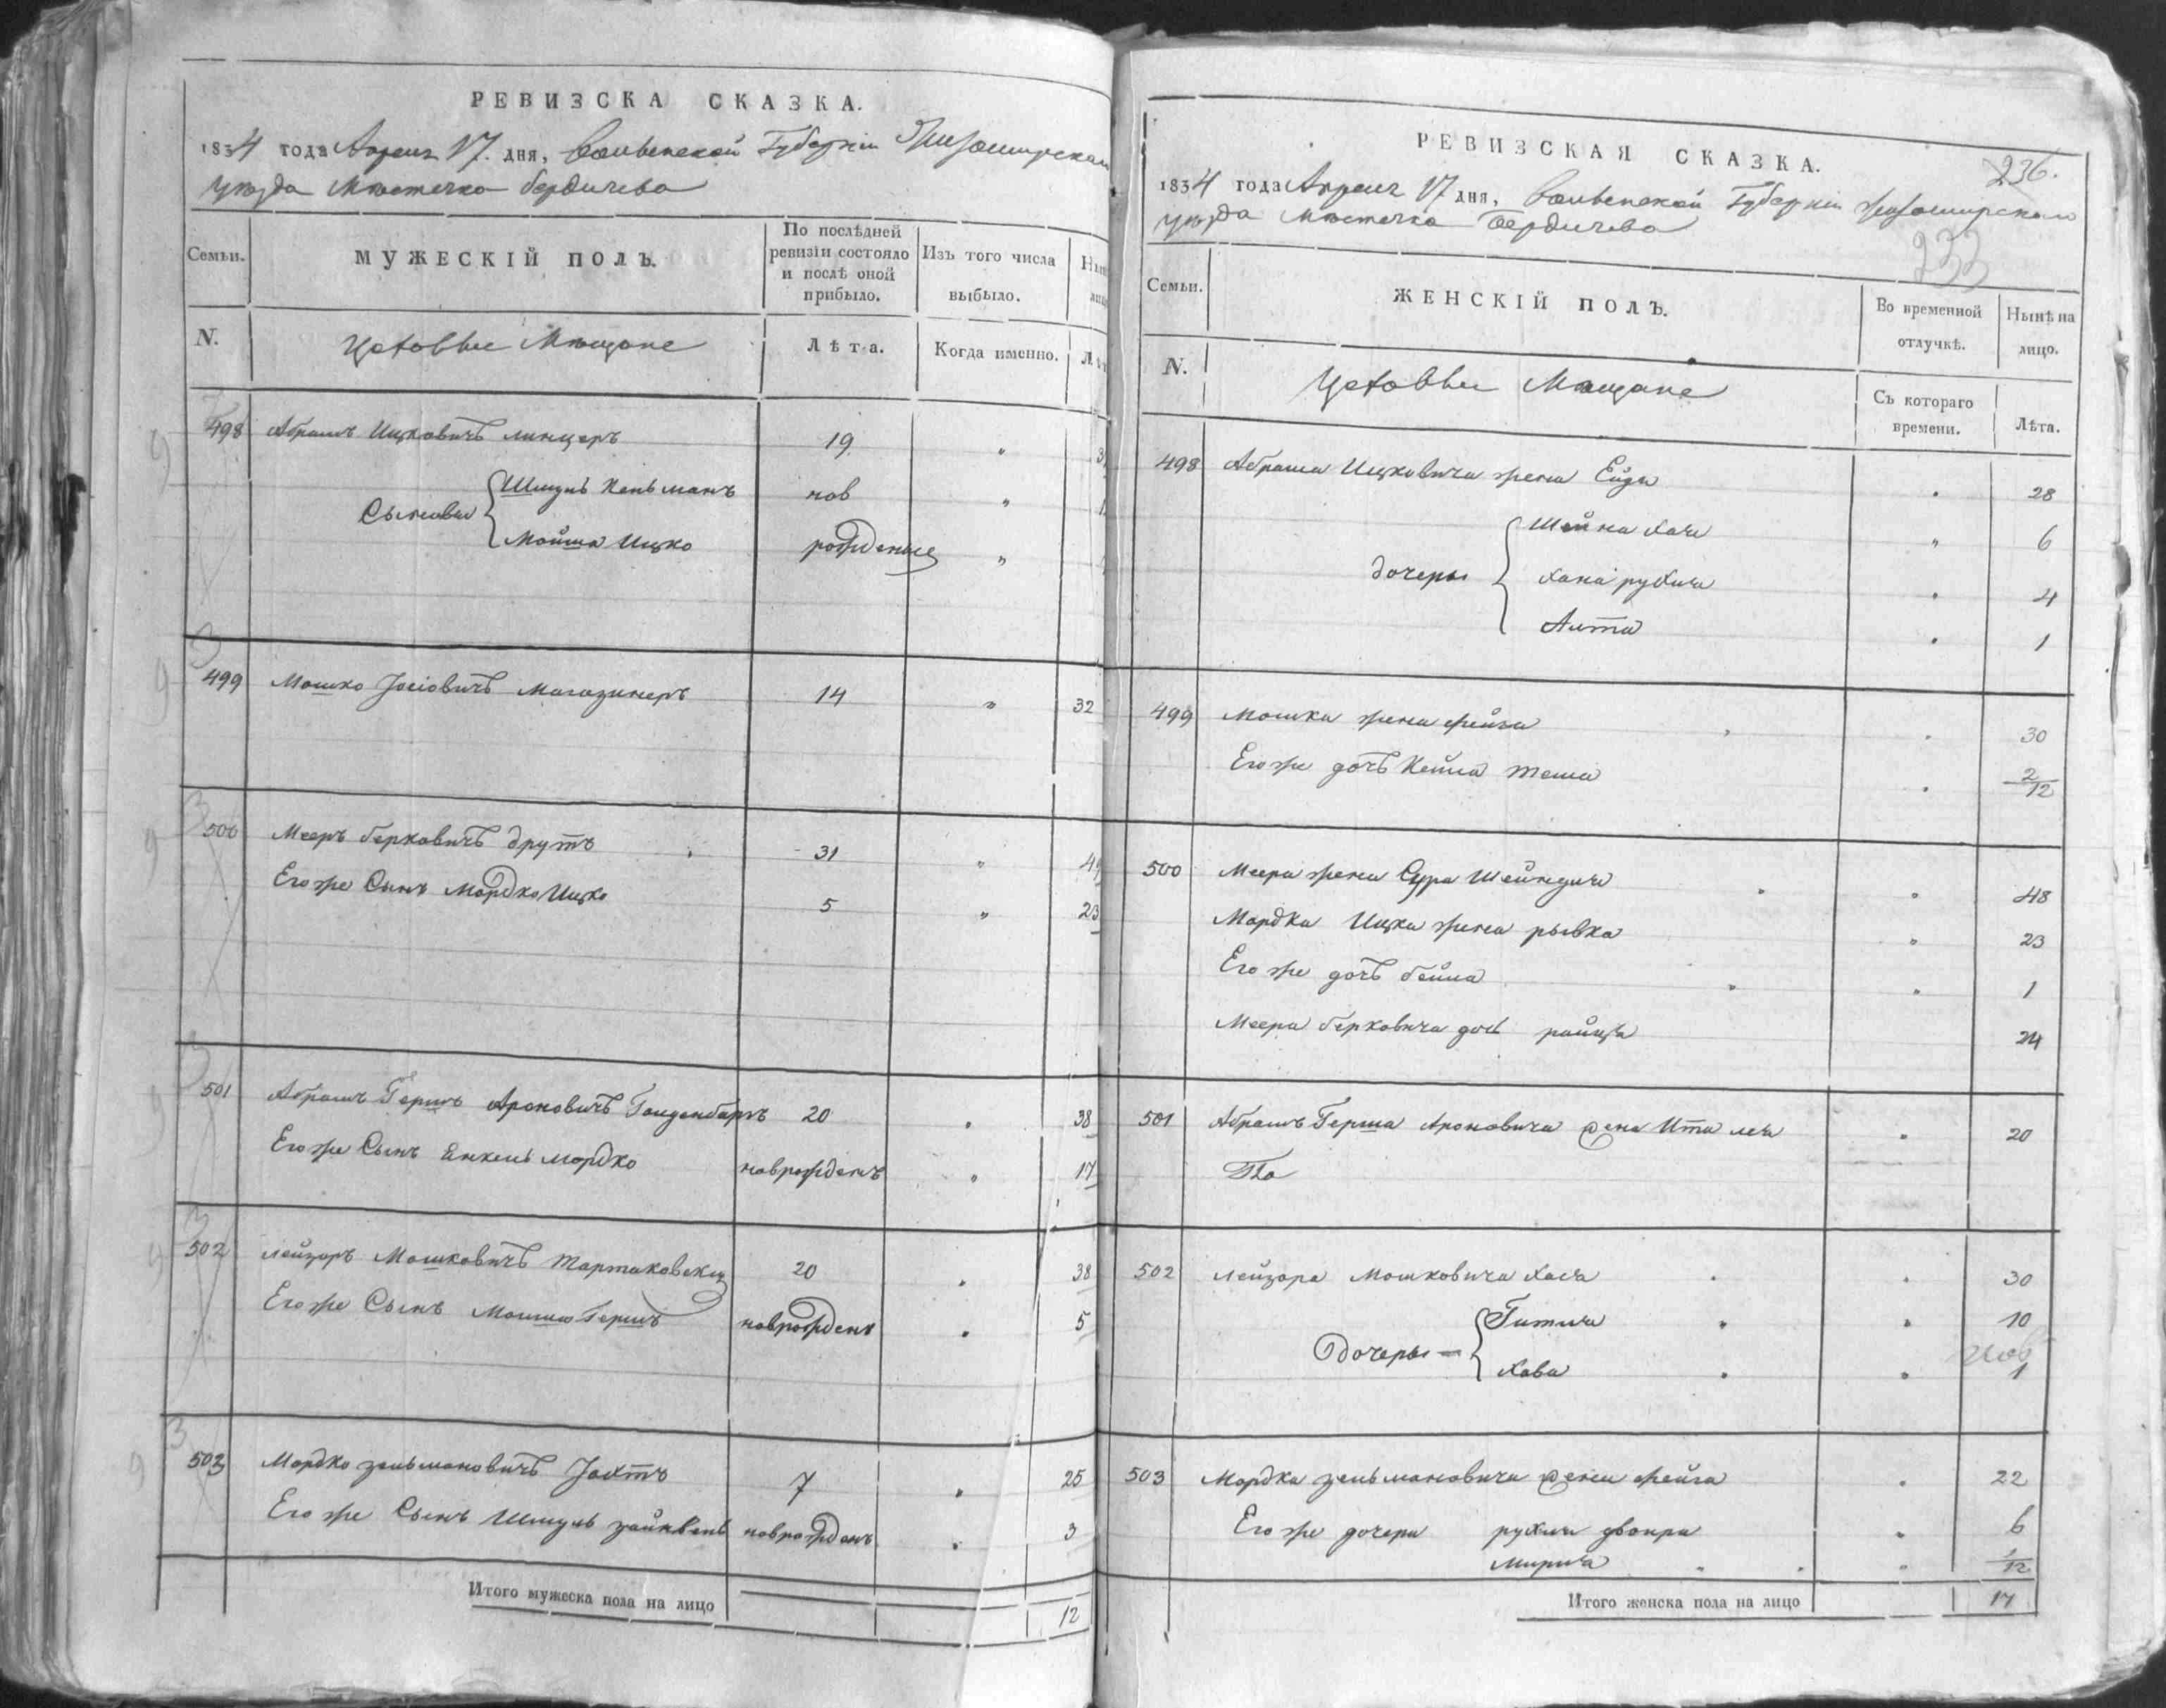 РЕВИЗСКА СКАЗКА.
1834 года Апреля 17. дня, Волынской Губерніи Житомирскаго
уѣзда Мѣстечка Бердичева
Семьи.
МУЖЕСКІЙ ПОЛЪ.
По послѣдней ревизіи состояло и послѣ оной прибыло.
Изъ того числа выбыло.
N.
Цеховые Мѣщане
Лѣта.
Когда именно.
498 Абрамъ Ицковичъ линцеръ 19 "
Сыновья Шмуль Кельманъ нов "
Мойша Ицко рожденые "
499 Мошко Іосіовичъ Магазинеръ 14 " 32
500 Мееръ берковичъ Друтъ 31 "
Его же Сынъ Мордко Ицко 5 " 23
501 Абрамъ Гершъ Ароновичъ Голденбаръ 20 " 38
Его же Сынъ Янкель мордко новрожденъ " 17
502 лейзоръ Мошковичъ Тартаковски 20 " 38
Его же Сынъ Мошко Гершъ новрожденъ " 5
503 Мордко зельмановичъ Іохтъ 7 " 25
Его же Сынъ Шмуль зайнвель новрожденъ " 3
Итого мужеска пола на лицо 12
РЕВИЗСКАЯ СКАЗКА.
236.
1834 года Апреля 17 дня, Волынской Губерніи Житомирскаго
уѣзда мѣстечка Бердичева
233
Семьи.
ЖЕНСКІЙ ПОЛЪ.
Во временной отлучкѣ.
Нынѣ на лицо.
N.
Цеховые Мѣщане
Съ котораго времени.
Лѣта.
498 Абрама Ицковича жена Ейдя " 28
Шейна хая " 6
дочеры хана рухля " 4
Алта " 1
499 Мошка жена фейга " 30
Его же дочь Кейла тема " 2/12
500 Меера жена Сура Шейндля " 48
Мордка Ицка жена рывка " 23
Его же дочъ бейла " 1
Меера берковича дочь райца 24
501 Абрамъ Герша Ароновича жена Ита лея " 20
502 Лейзора мошковича хася " 30
Дочеры Гитля " 10
хава " 1
503 Мордка зельмановича жена фейга " 22
Его же дочери рухля двойра " 6
мирля " 1/12
Итого женска пола на лицо 17